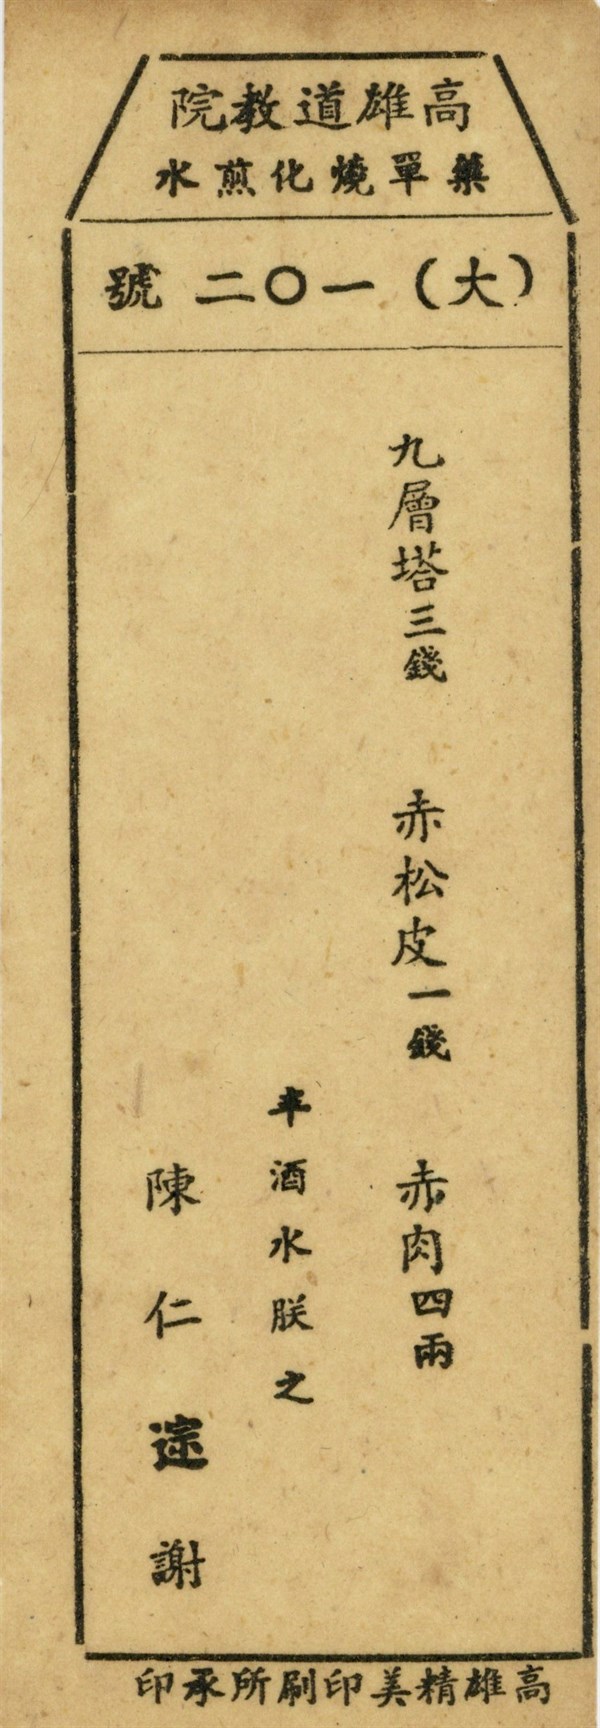 高雄道教院
藥單燒化煎水
（大）一〇二號
九層塔三錢　赤松皮一錢　赤肉四兩
半酒水朕之
陳仁逨謝
高雄精美印刷所承印